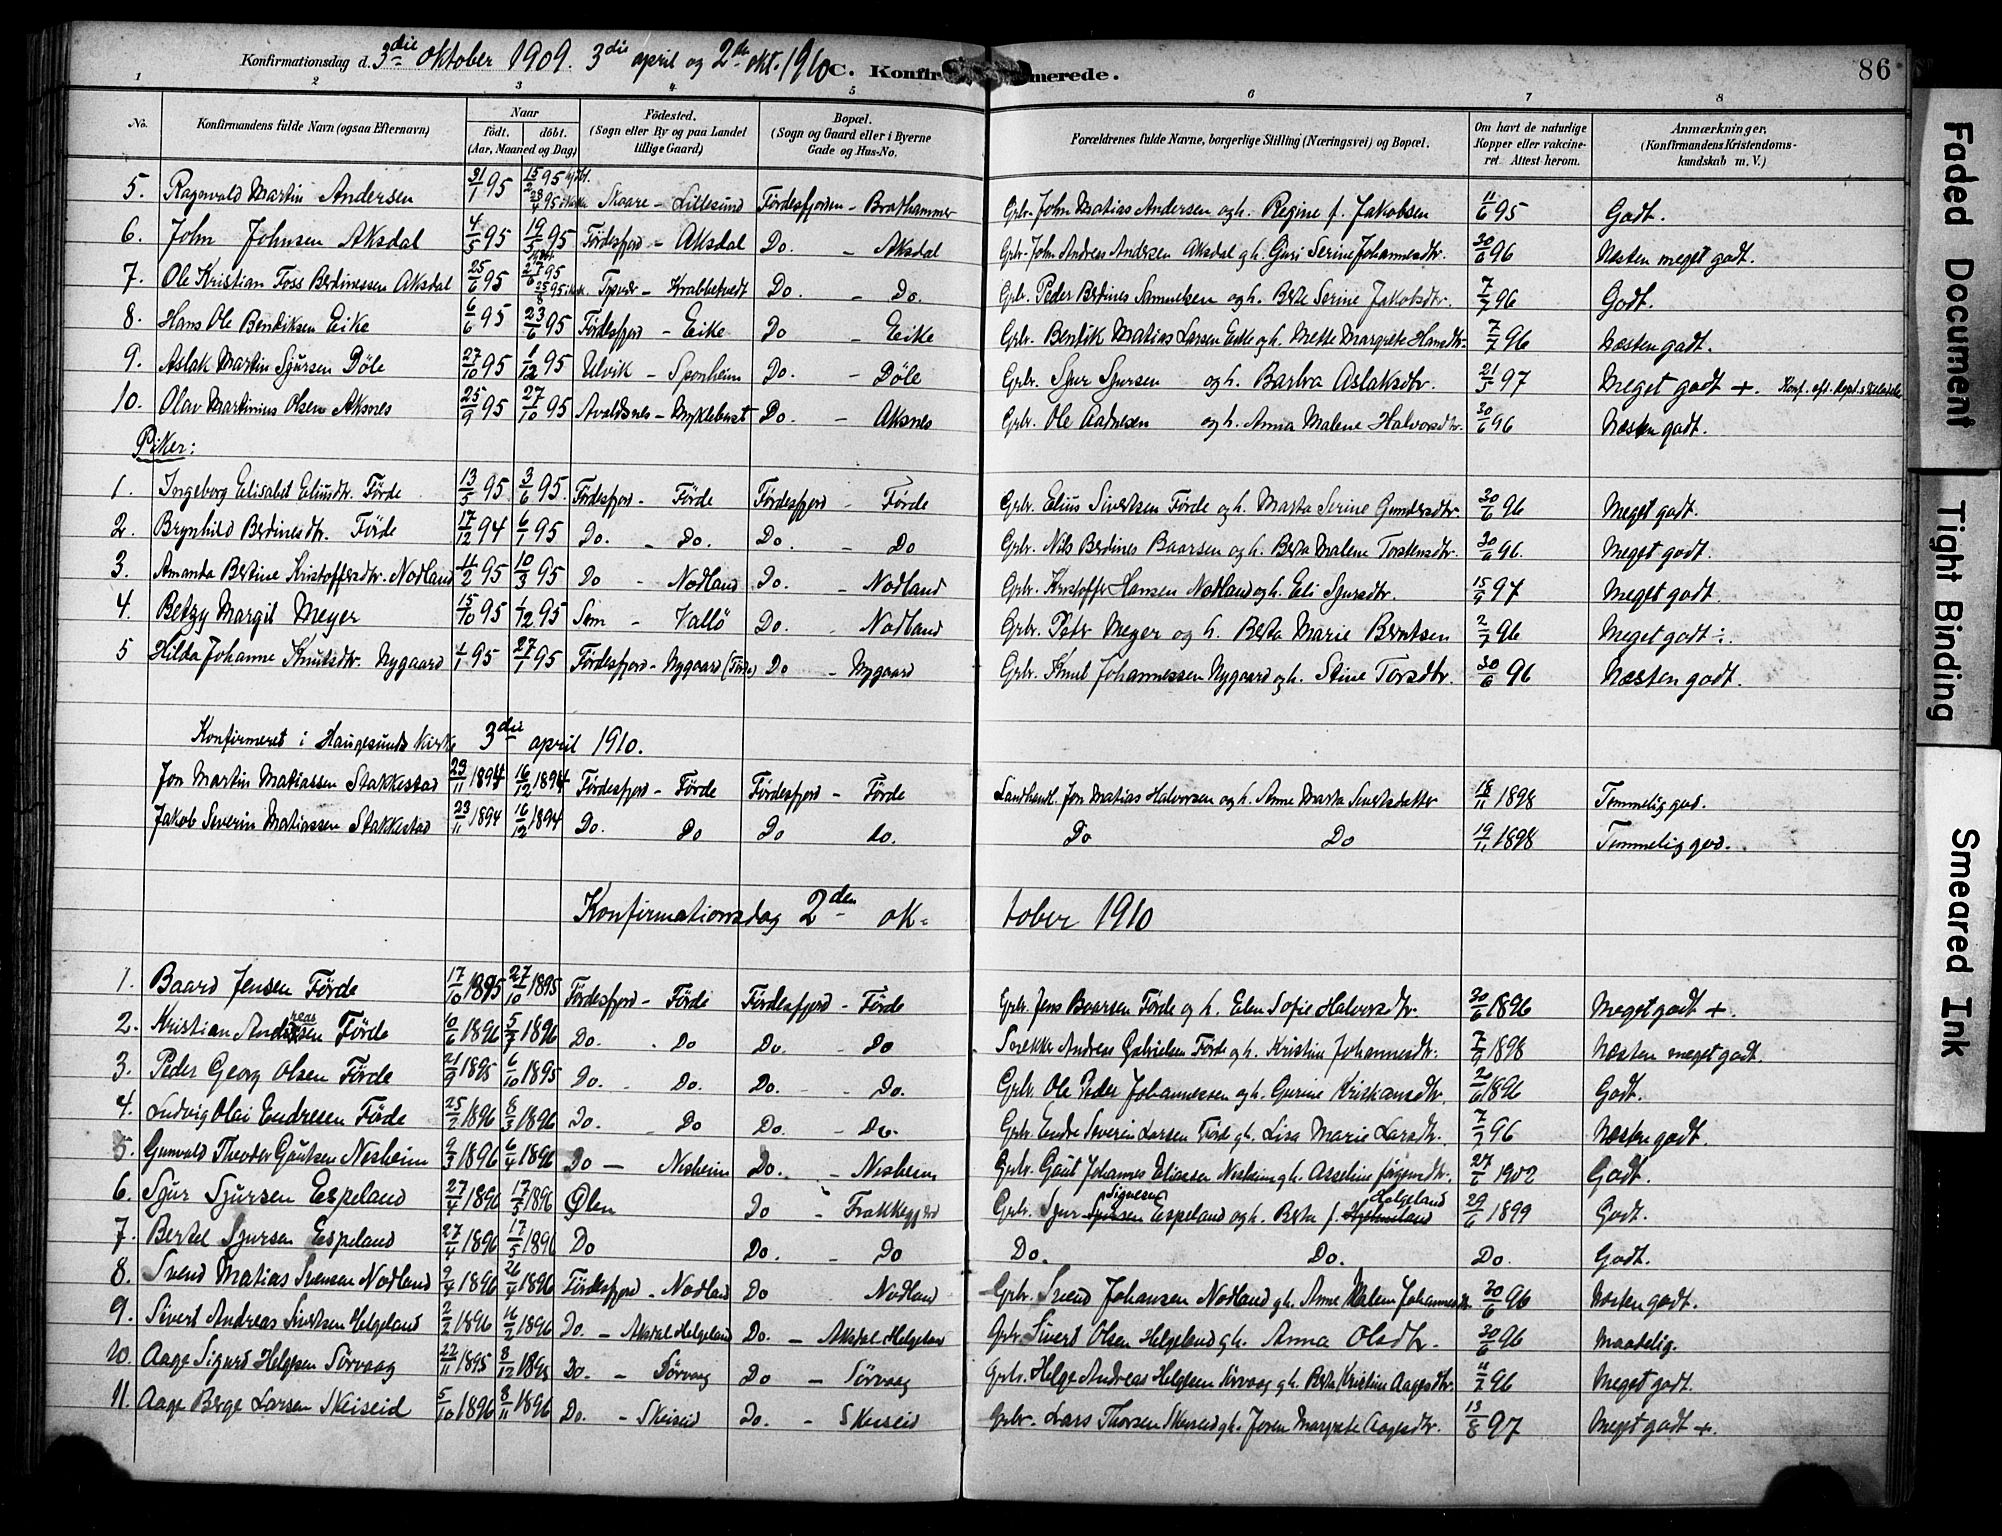 Konfirmationsdag d. 3die oktober 1909. 3die april og 2den okt. 1910 C. Konfirmerede. 86
1 2 3 4 5 6 7 8
No. Konfirmandens fulde Navn (ogsaa Efternavn) Naar født. døbt. (Aar, Maaned og Dag) Fødested. (Sogn eller By og paa Landet tillige Gaard) Bopæl. (Sogn og Gaard eller i Byerne Gade og Hus-No. Forældrenes fulde Navne, borgerlige Stilling (Næringsvei) og Bopæl. Om havt de naturlige Kopper eller vaccineret. Attest herom. Anmærkninger. (Konfirmandens Kristendomskundskab m. V.)
5. Ragnvald Martin Andersen 31/1 95 15/2 95 28/4 95 Skaare - Lillesund Førdesfjorden - Bradhammer Grbr. John Matias Andersen og h. Regine f. Jakobsen 11/6 95 Godt.
6. John Johnsen Aksdal 4/5 95 19/5 95 Førdesfjord - Aksdal Do. - Aksdal Grbr. John Andreas Andersen Aksdal og h. Guri Serine Johannesdtr. 30/6 96 Næsten meget godt.
7. Ole Kristian Foss Berdinessen Aksdal 25/6 95 27/6 95 25/8 95 Tysvær - Krabbetvedt Do. - Do. Grbr. Peder Berdines Samuelsen og h. Berte Serine Jakobsdtr. 7/7 96 Godt.
8. Hans Ole Bendiksen Eike 6/6 95 23/6 95 Førdesfjord - Eike Do - Eike Grbr. Bendik Matias Larsen Eike og h. Mette Margrete Hansdtr. 7/7 96 Næsten godt.
9. Aslak Martin Sjursen Døle 27/10 95 1/12 95 Ulvik - Sponheim Do. - Døle Grbr. Sjur Sjursen og h. Barbra Aslaksdtr. 21/5 97 Meget godt +. Konf. eft.
10. Olav Martinius Olsen Aksnes 25/9 95 27/10 95 Avaldsnes - Myklebust Do. - Aksnes Grbr. Ole Aadnesen og h. Anna Malene Halvorsdtr. 30/6 96 Næsten godt.
Piker:
1. Ingeborg Elisabet Eliusdtr. Førde 13/5 95 3/6 95 Førdesfjord - Førde Førdesfjord - Førde Grbr. Elius Sivertsen Førde og h. Marta Serine Gundersdtr. 30/6 96 Meget godt.
2. Brynhild Berdinesdtr. Førde 17/12 94 6/1 95 Do. - Do. Do. - Do Grbr. Nils Berdines Baarsen og h. Berta Malene Torstensdtr. 30/6 96. Meget godt.
3. Amanda Bertine Kristoffersdtr. Nodland 11/2 95 10/3 95 Do - Nodland Do. - Nodland Grbr. Kristoffer Hansen Nodland og h. Eli Sjursdtr. 15/9 97 Meget godt.
4. Betzy Margit Meyer 15/10 95 1/12 95 Sem - Vallø Do. - Nodland Grbr. Petr Meyer og h. Berta Marie Berntsen 2/7 96 Meget godt ÷.
5 Hilda Johanne Knutsdtr. Nygaard 1/1 95 27/1 95 Førdesfjord - Nygaard (Førde) Do - Nygaard Grbr. Knut Johannessen Nygaard og h. Stine Torsdtr. 30/6 96 Næsten godt.
Konfirmeret i Haugesunds kirke 3die april 1910.
Jon Martin Matiassen Stakkestad 23/11 1894 16/12 1894 Førdesfjord - Førde Førdesfjord - Førde Landhandl. Jon Matias Halvorsen og h. Anne Marta Sivertsdatter 18/11 1898 Temmelig god.
Jakob Severin Matiassen Stakkestad 23/11 1894 16/12 1894 Do. Do Do do. Do Do 19/11 1898 Temmelig god.
Konfirmationsdag 2den oktober 1910
1. Baard Jensen Førde 17/10 1895 27/10 1895 Førdesfjord - Førde Førdesfjord - Førde Grbr. Jens Baarsen Førde og h. Elen Sofie Halvorsdtr. 30/6 1896 Meget godt +.
2. Kristian Andreassen Førde 10/6 1896 5/7 1896 Do. - Do Do. - Do Snekker Andreas Gabrielsen Førde og h. Kristine Johannesdtr. 7/9 1898 Næsten meget godt.
3. Peder Georg Olsen Førde 21/9 1895 6/10 1895 Do. - Do. Do. - Do. Grbr. Ole Peder Johannessen og h. Gurine Kristiansdtr. 1896 Godt.
4. Ludvig Olai Endresen Førde 25/2 1896 8/3 1896 Do. - Do Do. - Do. Grbr. Endre Severin Larsen Førde og h. Lisa Marie Larsdtr. 7/7 96 Næsten godt.
5. Gunvald Theodor Gautsen Nesheim 9/3 1896 6/4 1896 Do - Nesheim Do. - Nesheim Grbr. Gaut Johannes Eliassen Nesheim og h. Asseline Jørgensdtr. 27/6 1902 Godt.
6. Sjur Sjursen Espeland 27/4 1896 17/5 1896 Ølen Do - Frakkagjerd Grbr. Sjur Signesen Espeland og h. Berta f. Helgeland 29/6 1899 Godt.
7. Bertel Sjursen Espeland 27/4 1896 17/5 1896 Do Do. - Do Do. Do. Do. Godt.
8. Svend Matias Svensen Nodland 9/4 1896 26/4 1896 Førdesfjord - Nodland Do Nodland Grbr. Svend Johansen Nodland og h. Anne Malene Johannesdtr. 30/6 96 Næsten godt.
9. Sivert Andreas Sivertsen Helgeland 2/2 1896 16/2 1896 Do. - Aksdal Helgeland Do. - Aksdal Helgeland Grbr. Sivert Olsen Helgeland og h. Anna Olsdtr. 30/6 96 Maadelig.
10. Aage Sigurd Helgesen Sørvaag 22/11 1895 8/12 1895 Do. - Sørvaag Do - Sørvaag Grbr. Helge Andreas Helgesen Sørvaag og h. Berta Kristine Aagesdtr. 11/7 96 Meget godt.
11. Aage Berge Larsen Skeiseid 5/10 1896 8/11 1896 Do. - Skeiseid Do. - Skeiseid Grbr. Lars Thorsen Skeiseid og h. Joren Margrete Aagesdtr. 13/8 97 Meget godt +.
Faded Document
Tight Binding
Smeared Ink